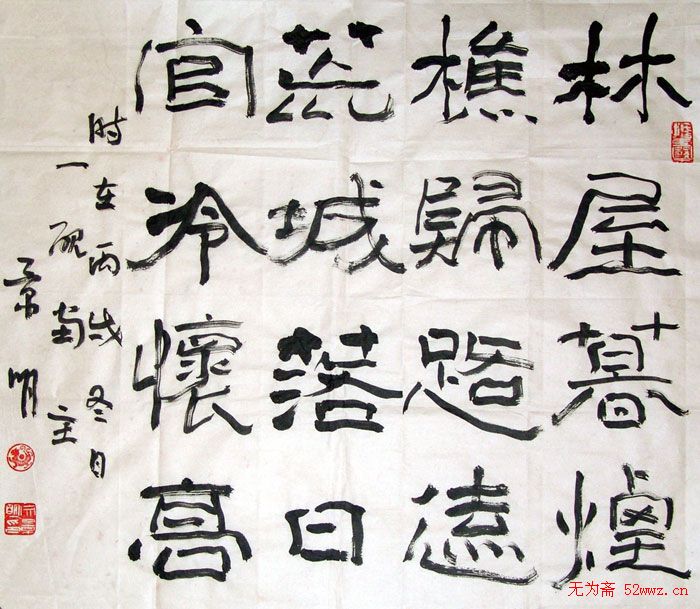 林屋暮煙
樵歸路遠
荒城落日
官冷懷高
时在丙戌冬日
一砚主
景明
无为斋 52wwz.cn